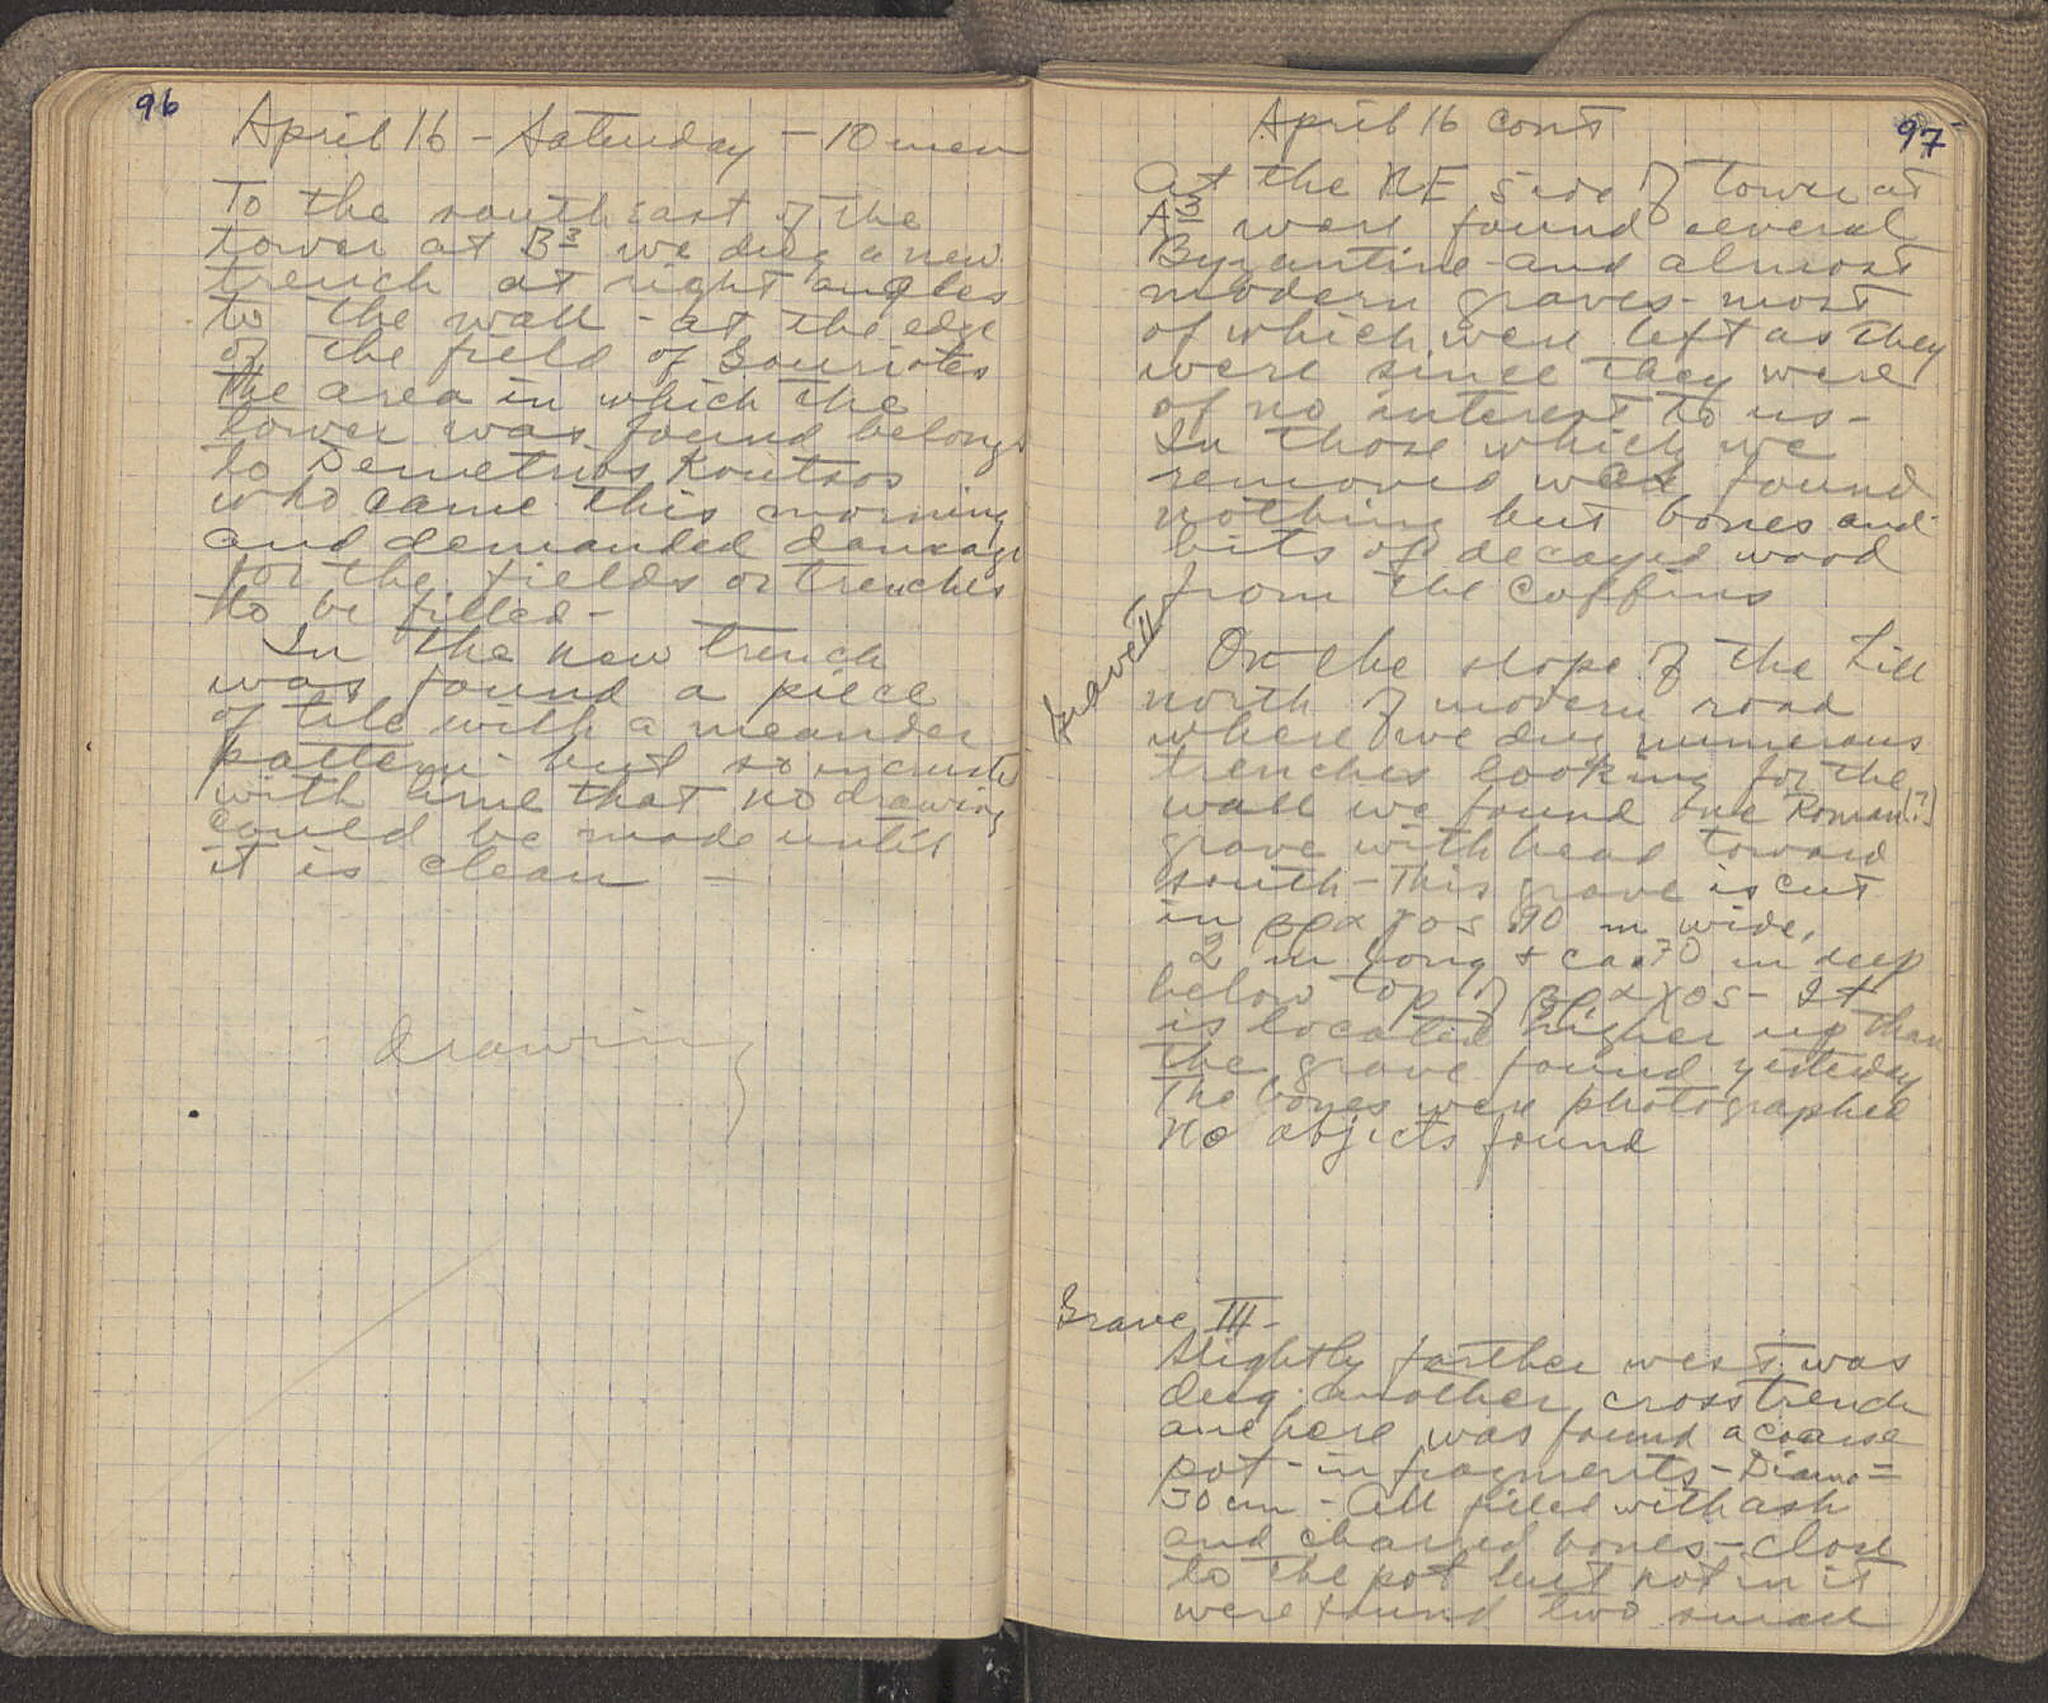 96
April 16 - Saturday - 10 men
To the southeast of the
tower at B3 we dug a new
trench at right angles
to the wall - at the edge
of the field of Gouriotes
The area in which the
tower was found belongs
to Demetrios Koutsos
who came this morning
and demanded damage
for the fields or trenches
to be filled -
In the new trench
was found a piece
of tile with a meander
pattern - but so incrusted
with lime that no drawing
could be made until
it is clean -
drawing
97
April 16 cont
At the NE side of tower at
A3 were found several
Byzantine and almost
modern graves - most
of which were left as they
were since they were
of no interest to us -
In those which we
removed was found
nothing but bones and
bits of decayed wood
from the coffins
Grave II
On the slope of the hill
north of modern road
where we dug numerous
trenches looking for the
wall we found one Roman (?)
grave with head toward
south - This grave is cut
in βραχος .90 m wide,
2 m long + ca .70 m deep
below top of βραχος - It
is located higher up than
the grave found yesterday
The bones were photographed
No objects found
Grave III -
Slightly farther west was
dug another cross trench
and here was found a coarse
pot - in fragments - Diam =
30 cm - All filled with ash
and charred bones - Close
to the pot but not in it
were found two small